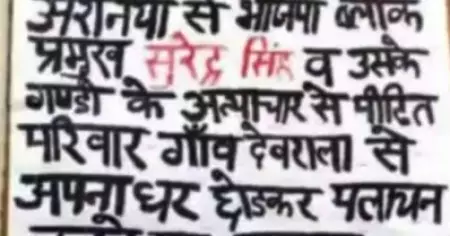 अरनिया से भाजपा ब्लाक
प्रमुख सुरेन्द्र सिंह व उसके
गुण्डों के अत्याचार से पीड़ित
परिवार गाँव देवराला से
अपना घर छोडकर पलायन